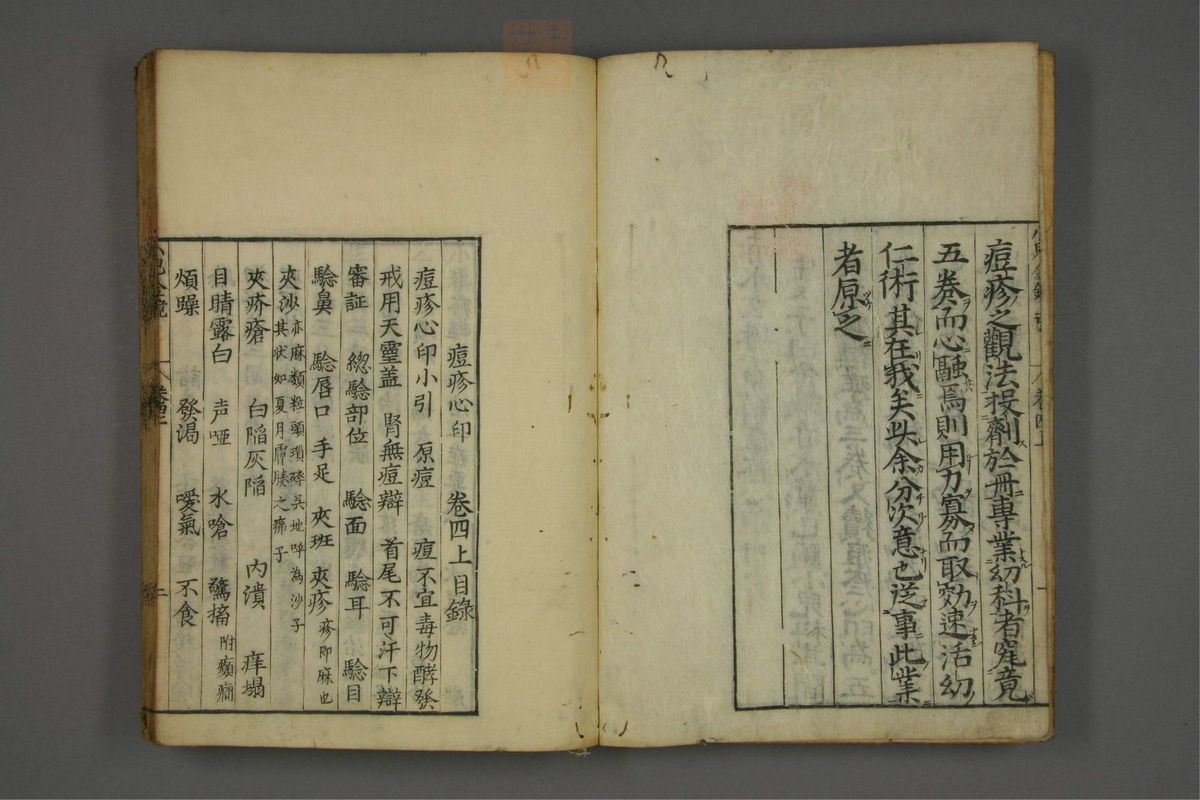 痘疹之觀法投劑於冊專業幼科者究竟
五卷而心融焉則用力寡而取効速活幼
仁術其在我矣此余分次意也從事此業
者原之
痘疹心印　卷四上目錄
痘疹心印小引　原痘　痘不宜毒物酵發
戒用天靈盖　腎無痘辯　首尾不可汗下辯
審証　總驗部位　驗面　驗耳　驗目
驗鼻　驗唇口　手足　夾班　夾疹疹即麻也
夾沙亦麻類粒頭瑣碎吳地呼為沙子
其状如夏月膚腠之疿子
夾疥瘡　白陷灰陷　內潰　痒塌
目睛露白　声啞　水嗆　驚搐附癲癇
煩躁　發渴　噯氣　不食